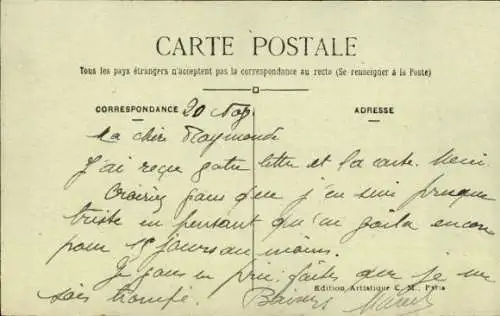 CARTE POSTALE
Tous les pays étrangers n'acceptent pas la correspondance au recto (Se renseigner à la Poste)
CORRESPONDANCE 20 ADRESSE
Ma chère Raymonde
J'ai reçu votre lettre et la carte. Merci.
que j'en suis presque
triste en pensant qu'en voilà encore
pour 15 jours au moins.
Je vous en prie. faites que je me
sois trompé. Baisers Marcel
Edition Artistique C. M., Paris